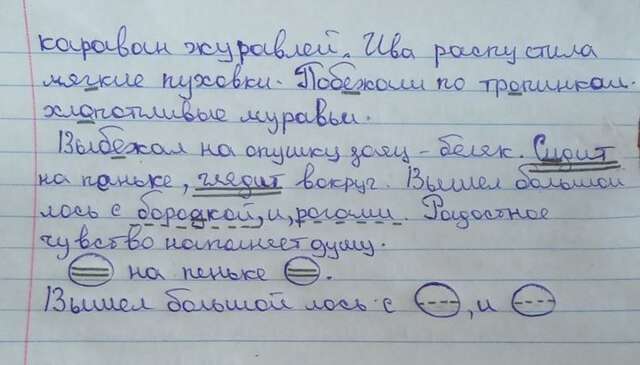 караван журавлей. Ива распустила
мягкие пуховки. Побежали по тропинкам.
хлопотливые муравьи.
Выбежал на опушку заяц-беляк. Сидит
на паньке, глядит вокруг. Вышел большой
лось с бородкой, и, рогами. Радостное
чувство наполняет душу.
на пеньке.
Вышел большой лось с , и